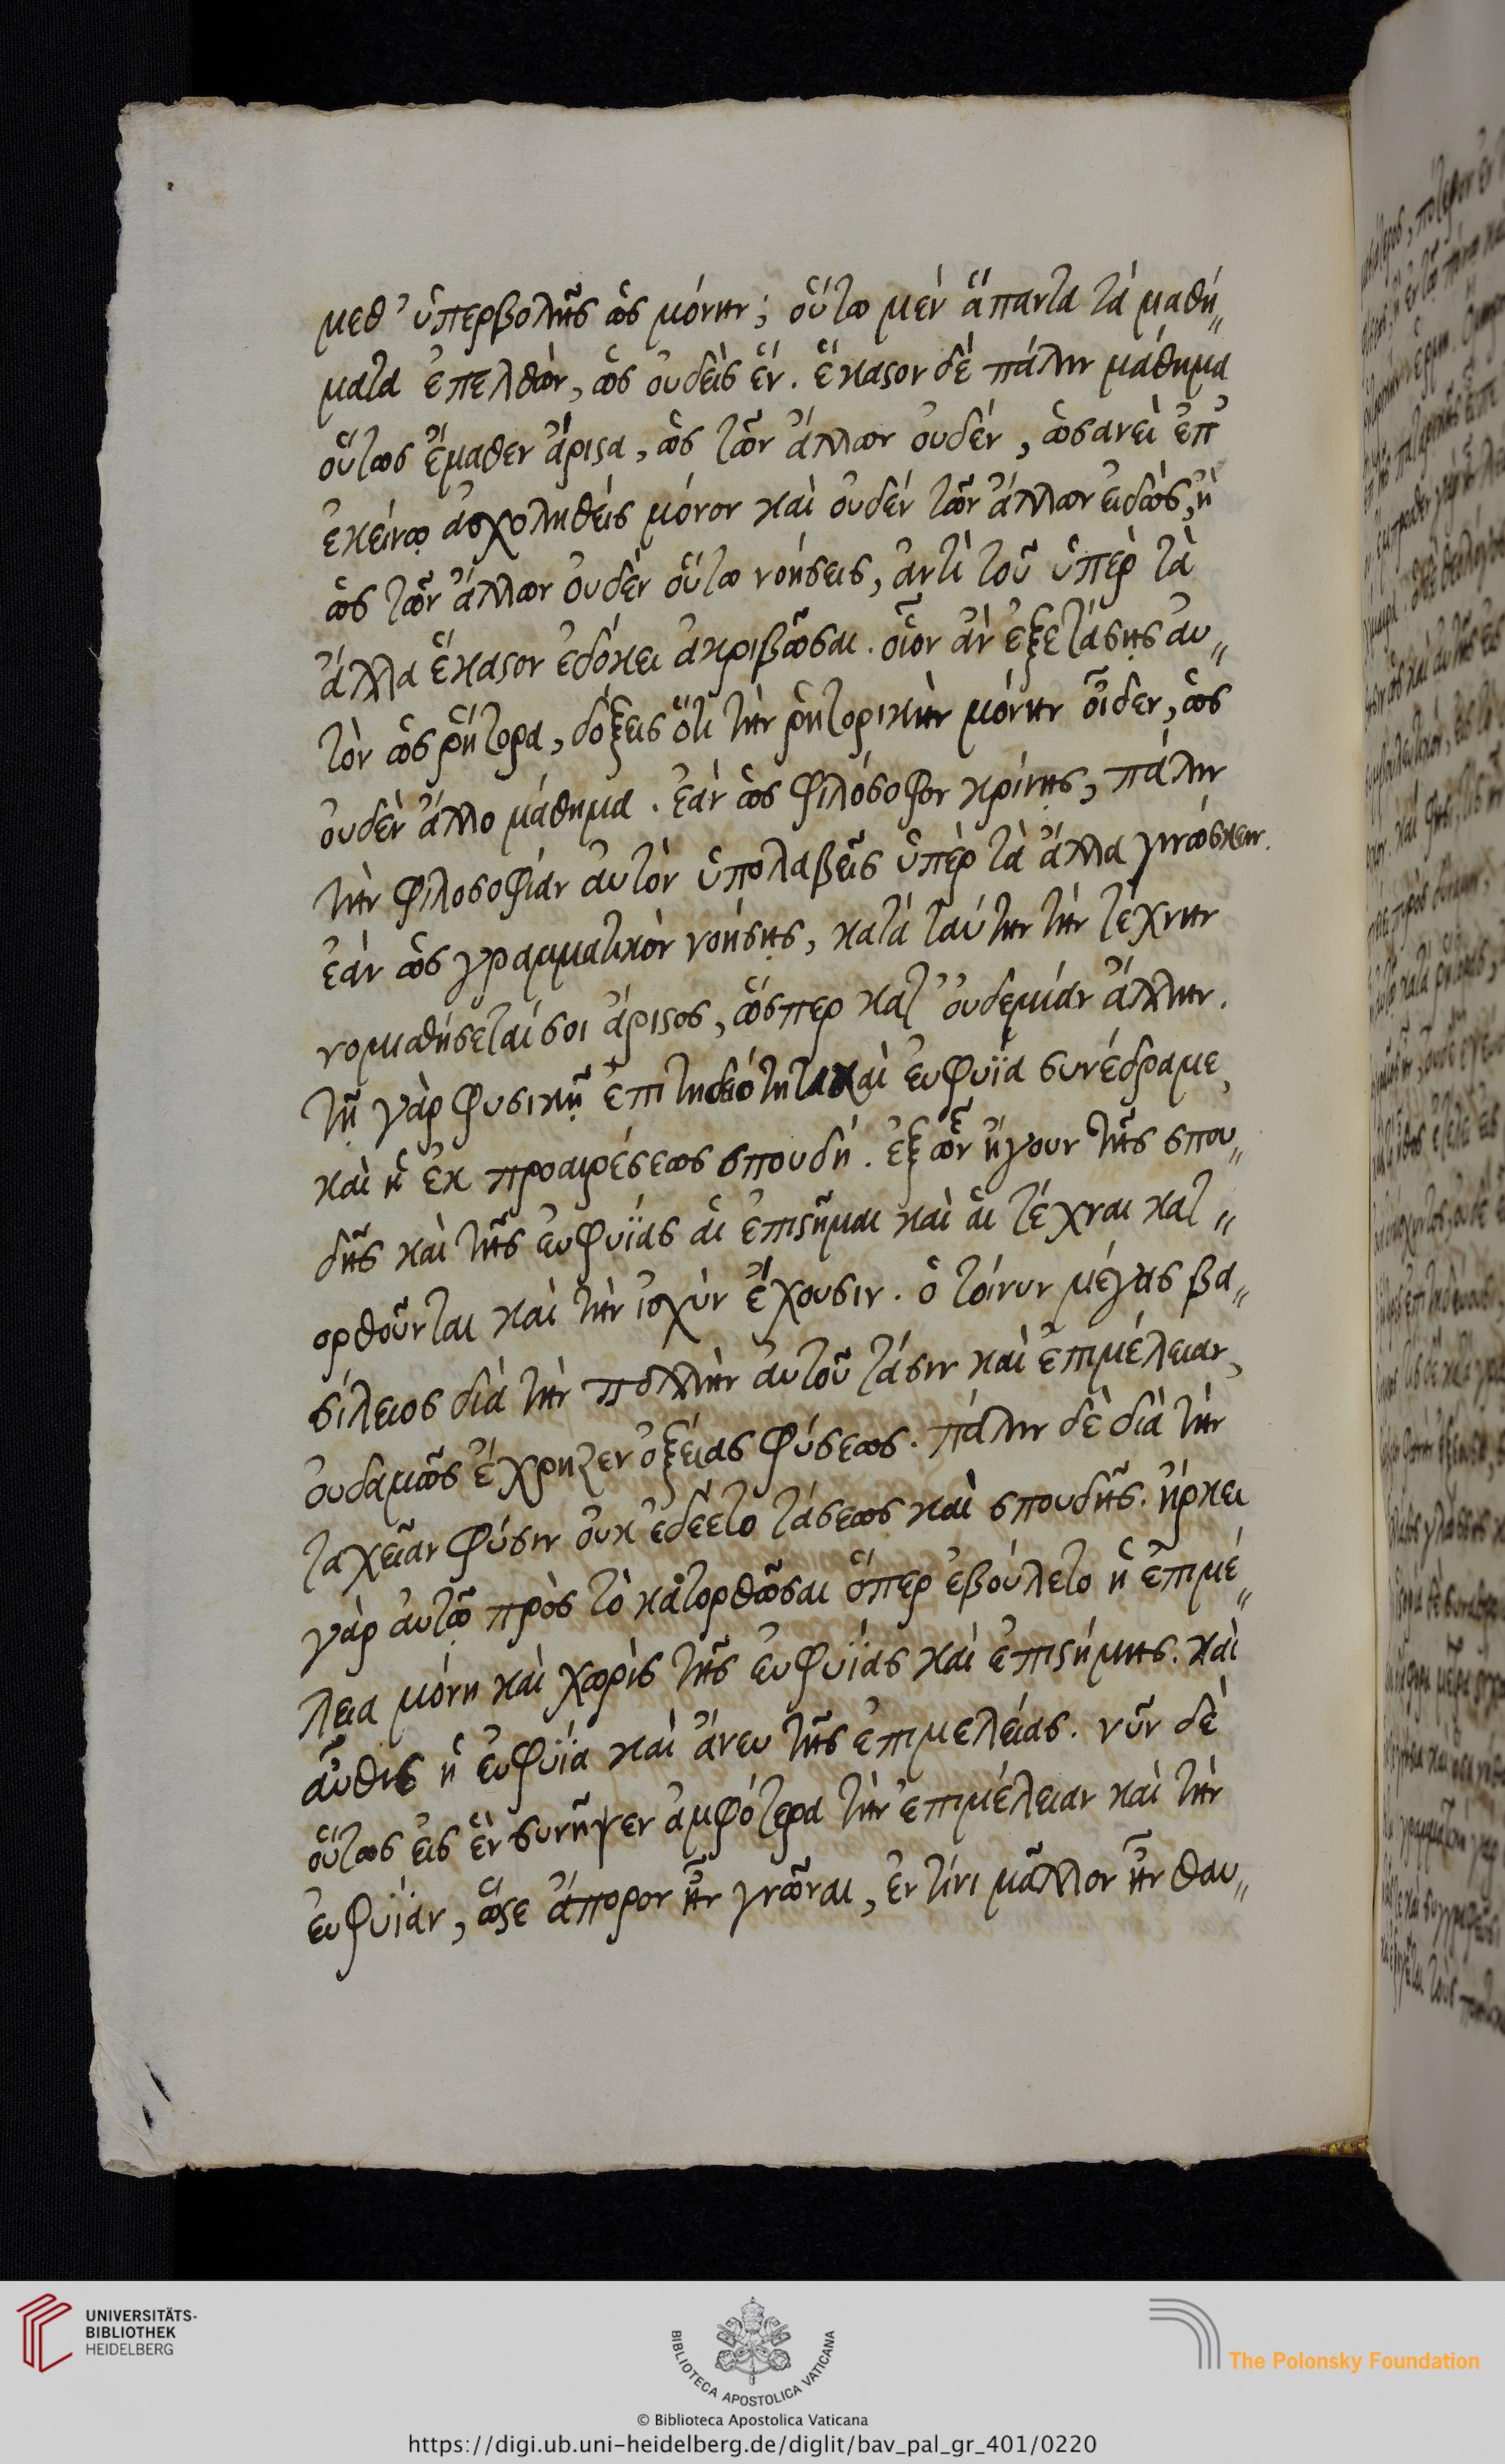 μεθ' ὑπερβολῆς ὡς μόνην; οὕτω μέν ἅπαντα τά μαθή„
ματα ἐπελθὼν, ὡς οὐδεὶς ἕν. ἕκαστον δὲ πάλιν μάθημα
οὕτως ἔμαθεν ἄριστα, ὡς τῶν ἄλλων οὐδέν, ὡσανεὶ ἐπ'
ἐκείνῳ ἀσχοληθείς μόνον καὶ οὐδέν τῶν ἄλλων εἰδὼς, ἢ
ὡς τῶν ἄλλων οὐδὲν οὕτω νοήσεις, ἀντὶ τοῦ ὑπὲρ τὰ
ἄλλα ἕκαστον ἐδόκει ἀκριβῶσαι. οἷον ἀν ἐξετάσῃς αὐ„
τὸν ὡς ῥήτορα, δόξεις ὅτι τὴν ῥητορικὴν μόνην οἶδεν, ὡς
οὐδὲν ἄλλο μάθημα. ἐάν ὡς φιλόσοφον κρίνῃς, πάλιν
τὴν φιλοσοφίαν αὐτὸν ὑπολαβεῖς ὑπὲρ τὰ ἄλλα γινώσκειν.
ἐάν ὡς γραμματικὸν νοήσῃς, κατά ταύτην τὴν τέχνην
νομιαθήσεταί σοι ἄριστος, ὥσπερ κατ' οὐδεμίαν ἄλλην.
τῇ γὰρ φυσικῇ ἐπιτηδειότητα καὶ εὐφυΐα συνέδραμε,
καὶ ἡ ἐκ προαιρέσεως σπουδή. ἐξ ὧν ἤγουν τῆς σπου„
δῆς καὶ τῆς εὐφυΐας αἱ ἐπιστῆμαι καὶ αἱ τέχναι κατ„
ορθοῦνται καὶ τὴν ἰσχὺν ἔχουσιν. ὁ τοίνυν μέγας βα„
σίλειος διὰ τὴν πολλὴν αὐτοῦ τάσιν καὶ ἐπιμέλειαν,
οὐδαμῶς ἔχρηζεν ὀξείας φύσεως. πάλιν δὲ διὰ τὴν
ταχεῖαν φύσιν οὐκ ἐδέετο τάσεως καὶ σπουδῆς. ἤρκει
γὰρ αὐτῷ πρὸς τὸ κατορθῶσαι ὅπερ ἐβούλετο ἡ ἐπιμέ„
λεια μόνη καὶ χωρὶς τῆς εὐφυΐας καὶ ἐπιστήμης. καὶ
αὖθις ἡ εὐφυΐα καὶ ἄνευ τῆς ἐπιμελείας. νῦν δὲ
οὕτως εἰς ἓν συνῆψεν ἀμφότερα τὴν ἐπιμέλειαν καὶ τὴν
εὐφυΐαν, ὥστε ἄπορον ἦν γνῶναι, ἐν τίνι μᾶλλον ἦν θαυ„
UNIVERSITÄTS-
BIBLIOTHEK
HEIDELBERG
BIBLIOTECA APOSTOLICA VATICANA
The Polonsky Foundation
© Biblioteca Apostolica Vaticana
https://digi.ub.uni-heidelberg.de/diglit/bav_pal_gr_401/0220